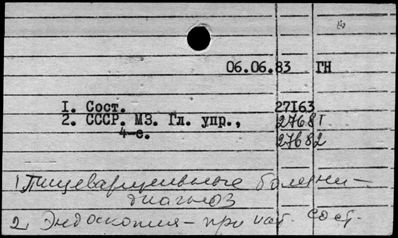 06.06.83 ГН
I. Сост. 27163
2. СССР. МЗ. Гл. упр., 27681
4-е. 27682
1. Пищеварительные болезни -
диагноз
2. Эндоскопия - при пат. сост.